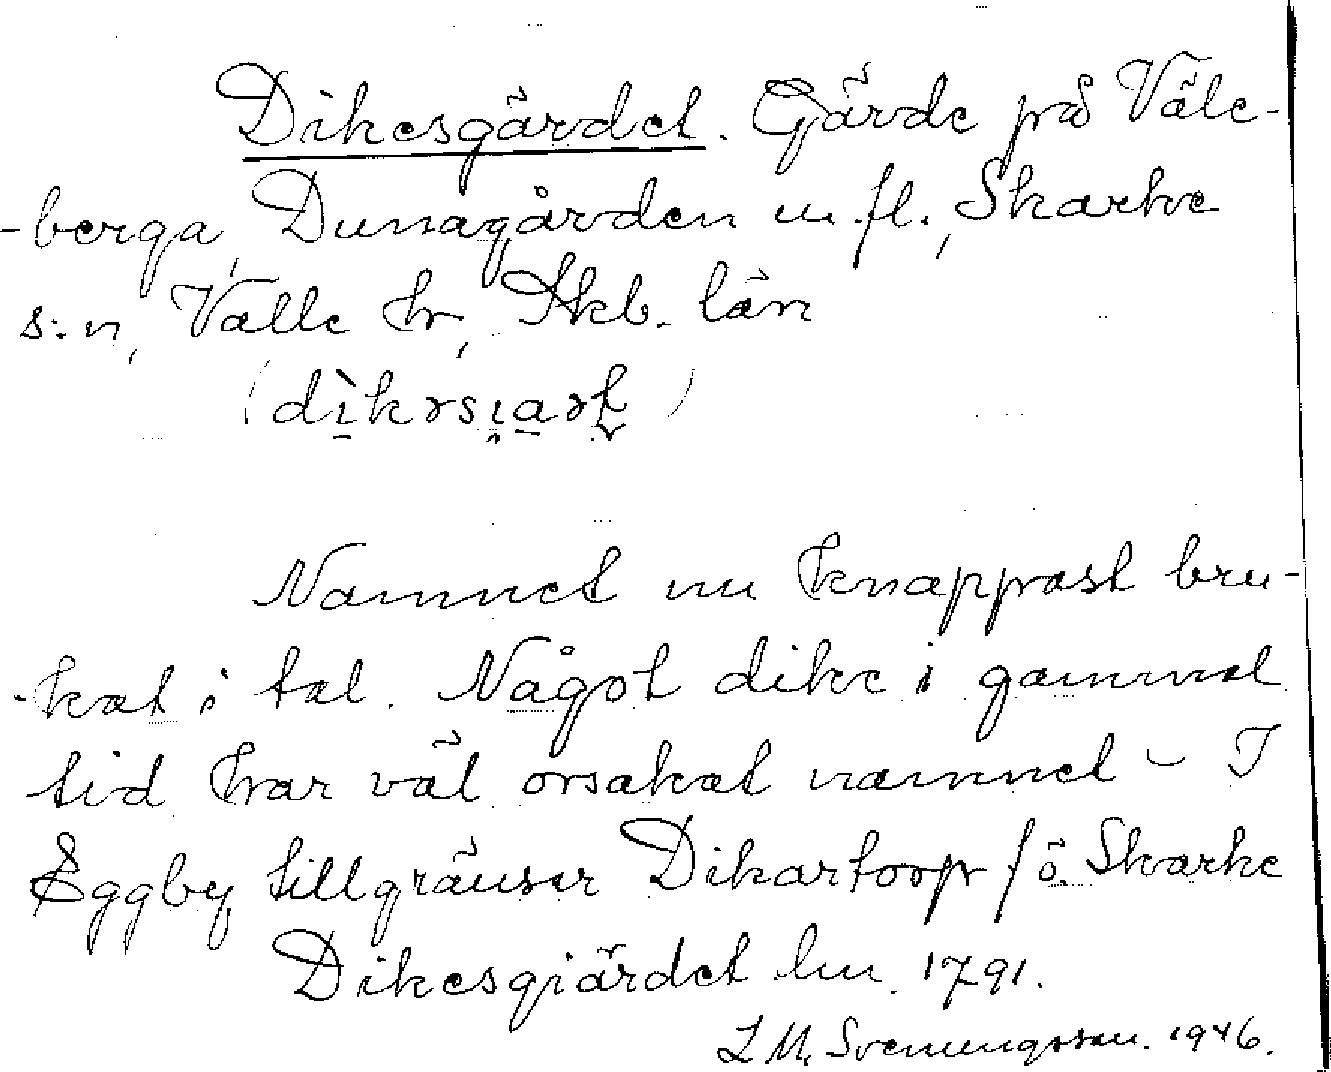 Dikesgärdet. Gärde på Väle-
-berga, Dunagården m. fl., Skarke
s:n, Valle hr, Skb. län
(dìkəsi̯aɽt)
Namnet nu knappast bru-
-kat i tal. Något dike i gammal
tid har väl orsakat namnet – I
Eggby tillgränser Dikartorp f ö Skarke
Dikesgiärdet lm 1791.
L M, Svenungsson. 1946.